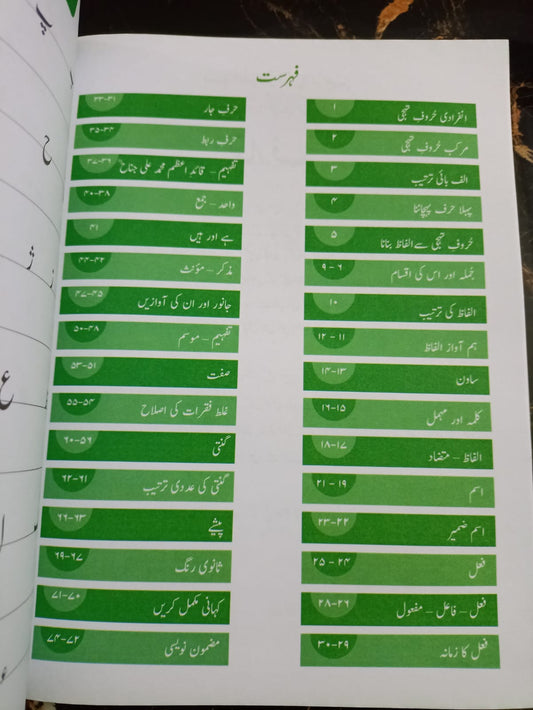 فہرست
انفرادی حُروفِ تہجی ۱
مرکب حُروفِ تہجی ۲
الف بائی ترتیب ۳
پہلا حرف پہچاننا ۴
حُروفِ تہجی سے الفاظ بنانا ۵
جُملہ اور اس کی اقسام ۶ - ۹
الفاظ کی ترتیب ۱۰
ہم آواز الفاظ ۱۱ - ۱۲
ساون ۱۳-۱۴
کلمہ اور مہمل ۱۵-۱۶
الفاظ – متضاد ۱۷-۱۸
اسم ۱۹ - ۲۱
اسم ضمیر ۲۲-۲۳
فعل ۲۴ - ۲۵
فعل – فاعل – مفعول ۲۶-۲۸
فعل کا زمانہ ۲۹-۳۰
حرفِ جار ۳۱-۳۳
حرفِ ربط ۳۴-۳۵
تفہیم – قائدِ اعظم محمد علی جناح ۳۶-۳۷
واحد – جمع ۳۸-۴۰
ہے اور ہیں ۴۱
مذکر – مؤنث ۴۲-۴۴
جانور اور ان کی آوازیں ۴۵-۴۷
تفہیم – موسم ۴۸-۵۰
صفت ۵۱-۵۳
غلط فقرات کی اصلاح ۵۴-۵۵
گنتی ۵۶-۶۰
گنتی کی عددی ترتیب ۶۱-۶۲
پیشے ۶۳-۶۶
ثانوی رنگ ۶۷-۶۹
کہانی مکمل کریں ۷۰-۷۱
مضمون نویسی ۷۲-۷۴